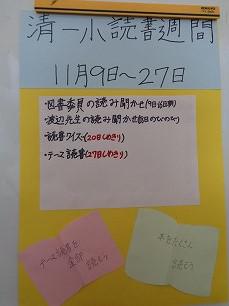 清一小読書週間
11月9日~27日
・図書委員の読み聞かせ(9日
・渡辺先生の読み聞かせ
・読書クイズ(20日しめきり)
・テーマ読書(27日しめきり)
テーマ読書を
全部
読もう
本をたくさん
読もう